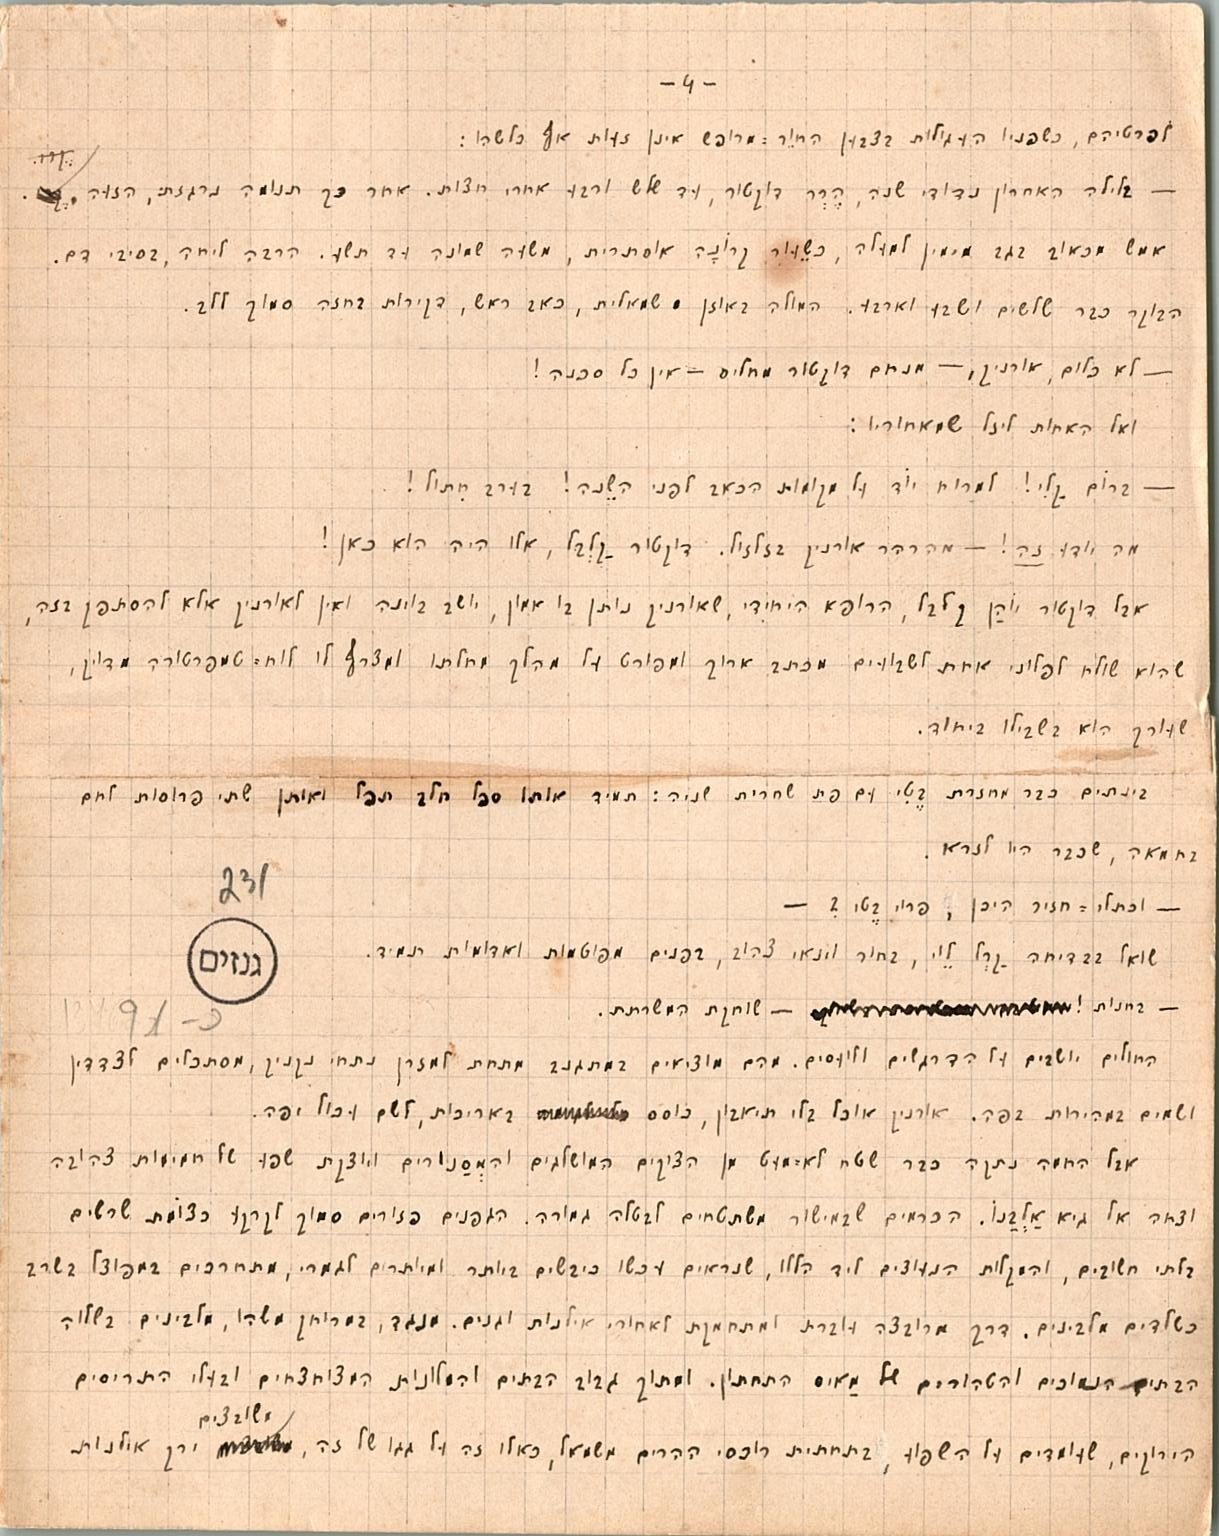 - 4 -
לפרטיהם, כשפניו העגולות בצבען החור-מרופש אינן זעות אף כלשהו:
— בלילה האחרון נדודי שנה, הֶרְר דוקטור, עד שלש ורבע אחרי חצות. אחר כך תנומה נרגזת, הזעה
אמש מכאוב בגב מימין למעלה, כשעור קרוֹנָה אוסטרית, משעה שמונה עד תשע. הרבה ליחה, בסיבי דם.
הבוקר כבר שלשים ושבע וארבע. המולה באוזן שמאלית, כאב ראש, דקירות בחזה סמוך ללב.
— לא כלום, אורניק, — מנחם דוקטור מחליט — אין כל סכנה!
ואל האחות ליזל שמאחוריו:
— ברוֹם קַלִי! למרוח יוֹד על מקומות הכאב לפני השֵנה! בערב חִתול!
מה יודע זה! — מהרהר אורניק בזלזול. דוקטור קַלְבל, אלו היה הוא כאן!
אבל דוקטור יוֹהַן קַלבל, הרופא היחידי, שאורניק נותן בו אמון, יושב בוינה ואין לאורניק אלא להסתפק בזה,
שהוא שולח לפלוני אחת לשבועים מכתב ארוך ומפורט על מהלך מחלתו ומצרף לו לוח-טמפרטורה מדויק,
שעורך הוא בשבילו ביחוד.
בינתים כבר מחזרת בֶּטִי עם פת שחרית שניה: תמיד אותו ספל חלב תפל ואותן שתי פרוסות לחם
בחמאה, שכבר היו לזרא.
— וכתלי-חזיר היכן, פרוי בֶּטי?
שואל בבדיחה קַרְל לֵוִי, בחור וינאי צהוב, בפנים מפוטמות ואדומות תמיד.
— בחנות! — שוחקת המשרתת.
גנזים
231
כ- 91
החולים יושבים על הדרגשים ולועסים. מהם מוציאים במתגנב מתחת למזרן נתחי נקניק, מסתכלים לצדדין
ושמים במהירות בפה. אורניק אוכל בלי תיאבון, כוסס באריכות, לשם עכול יפה.
אבל החמה נתקה כבר שטח לא-מעט מן הצוקים המושלגים והמְסַנורים ויוצקת שפע של חמימות צהובה
וצחה אל גיא אַלְבַּנוֹ. הכרמים שבמישור משתטחים לבטלה גמורה. הגפנים פזורים סמוך לקרקע כצומת שרשים
בלתי חשובים, והמקלות הנעוצים ליד הללו, שנראים עכשו כיבשים ביותר ומיותרים לגמרי, מתחרכים במפוצל בשרב
כשלדים מלבינים. דרך מרובצה עוברת ומתחמקת לאחורי אילנות וגנים. מנגד, במרוחק משהו, מלבינים בשלוה
הבתים הנמוכים והטהורים של מַאיס התחתון. ומתוך גבוב הבתים והמלונות המצוחצחים ובעלי התריסים
הירוקים, שעומדים על השפוע, בתחתית רוכסי ההרים משמאל, כאלו זה על גגו של זה, משובצים ירק אילנות